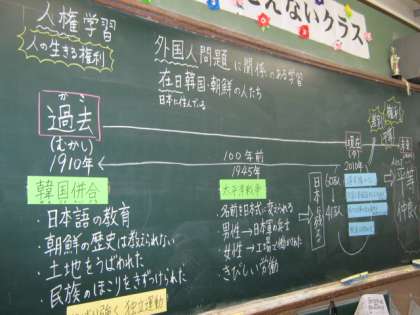 えないクラス
人権学習
人の生きる権利
外国人問題に関係のある学習
在日韓国・朝鮮の人たち
日本に住んでいる
かこ
過去
(むかし)
1910年
100年前
1945年
現在
(今)
2010年
差別
権利
平等
仲良
韓国併合
・日本語の教育
・朝鮮の歴史は教えられない
・土地をうばわれた
・民族のほこりをきずつけられた
強く独立運動
太平洋戦争
名前を日本式に変えられる
男性→日本軍の兵士
女性→工場で働かされた
きびしい労働
日本
60万人